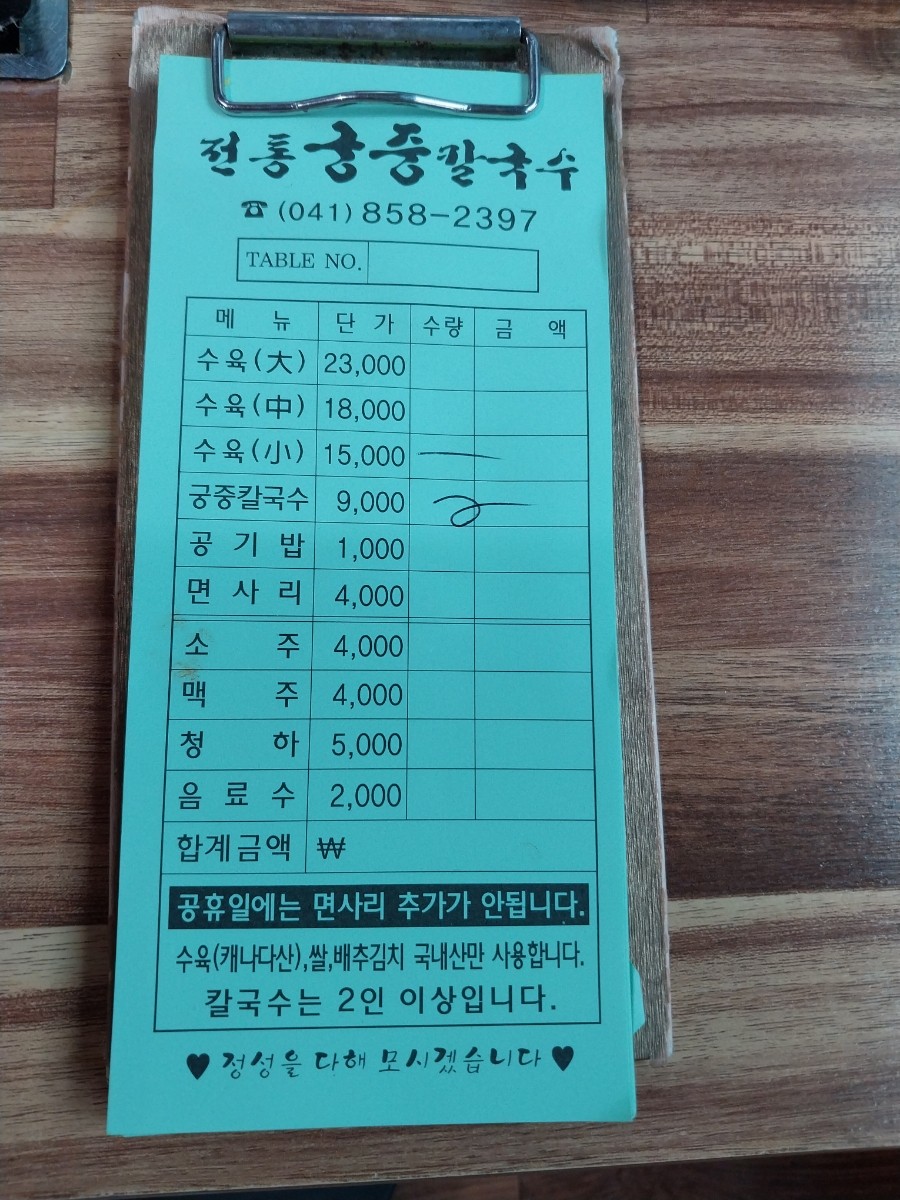 전통궁중칼국수
☎ (041) 858-2397
TABLE NO.
메 뉴 단 가 수량 금 액
수육(大) 23,000
수육(中) 18,000
수육(小) 15,000
궁중칼국수 9,000
공 기 밥 1,000
면 사 리 4,000
소 주 4,000
맥 주 4,000
청 하 5,000
음 료 수 2,000
합계금액 ₩
공휴일에는 면사리 추가가 안됩니다.
수육(캐나다산),쌀,배추김치 국내산만 사용합니다.
칼국수는 2인 이상입니다.
♥ 정성을 다해 모시겠습니다 ♥